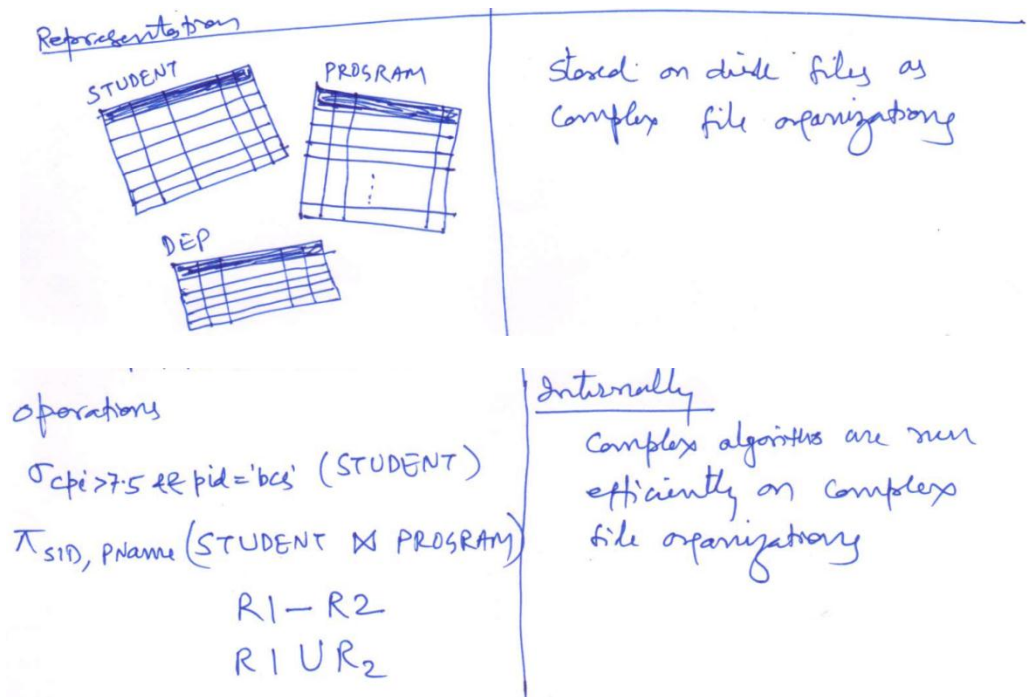 Representation
STUDENT
PROGRAM
DEP
stored on disk files as
complex file organizations
operations
σ cpi>7.5 && pid='bcs' (STUDENT)
π SID, PName (STUDENT ⋈ PROGRAM)
R1 – R2
R1 ∪ R2
Internally
Complex algoriths are run
efficiently on complex
file organizations